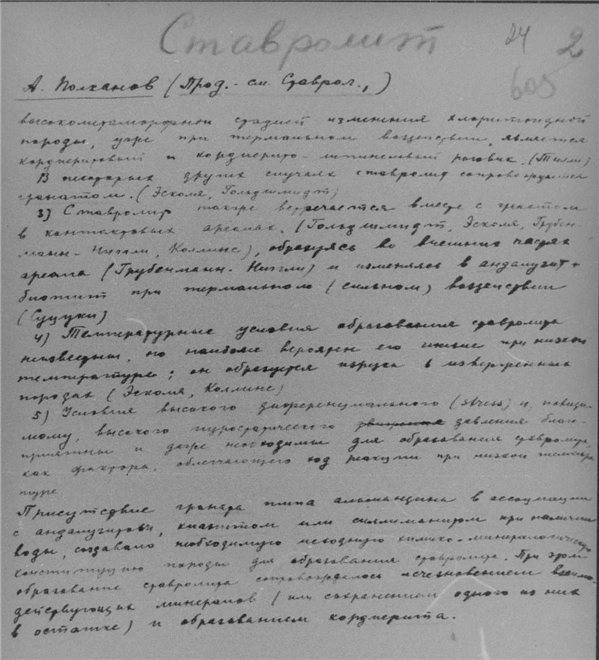 Ставролит 24 2
605
А. Полканов (Прод. - см. Ставрол.,)
высокометаморфной стадией изменения хлоритоидной
породы, даже при термальном воздействии, является
кордиеритовый и кордиерито-шпинелевый роговик. (Тилли)
В некоторых других случаях ставролит сопровождается
гранатом. (Эскола, Гольдшмидт)
3) Ставролит также встречается вместе с гранатом
в контактовых ареалах. (Гольдшмидт, Эскола, Грубен-
манн-Ниггли, Коллинс), образуясь во внешних частях
ареала (Грубенманн-Ниггли) и изменяясь в андалузит +
биотит при термальном (сильном) воздействии
(Суцуки)
4) Температурные условия образования ставролита
неизвестны, но наиболее вероятен его генезис при низкой
температуре; он образуется изредка в изверженных
породах (Эскола, Коллинс)
5) Условия высокого диференциального (stress) и, повиди-
мому, высокого гидростатического давления благо-
приятны и даже необходимы для образования ставролита,
как фактора, облегчающего ход реакции при низкой темпера
туре
Присутствие граната типа альмандина в ассоциации
с андалузитом, кианитом или силлиманитом при наличии
воды, создавало необходимую исходную химико-минералогическую
конституцию породы для образования ставролита. При этом
образование ставролита сопровождалось исчезновением взаимо-
действующих минералов (или сохранением одного из них
в остатке) и образованием кордиерита.